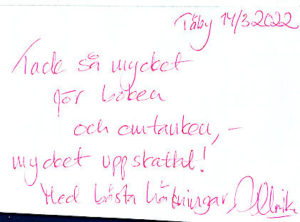 Täby 14/3 2022
Tack så mycket
för boken
och omtanken,-
mycket uppskattat!
Med bästa hälsningar,